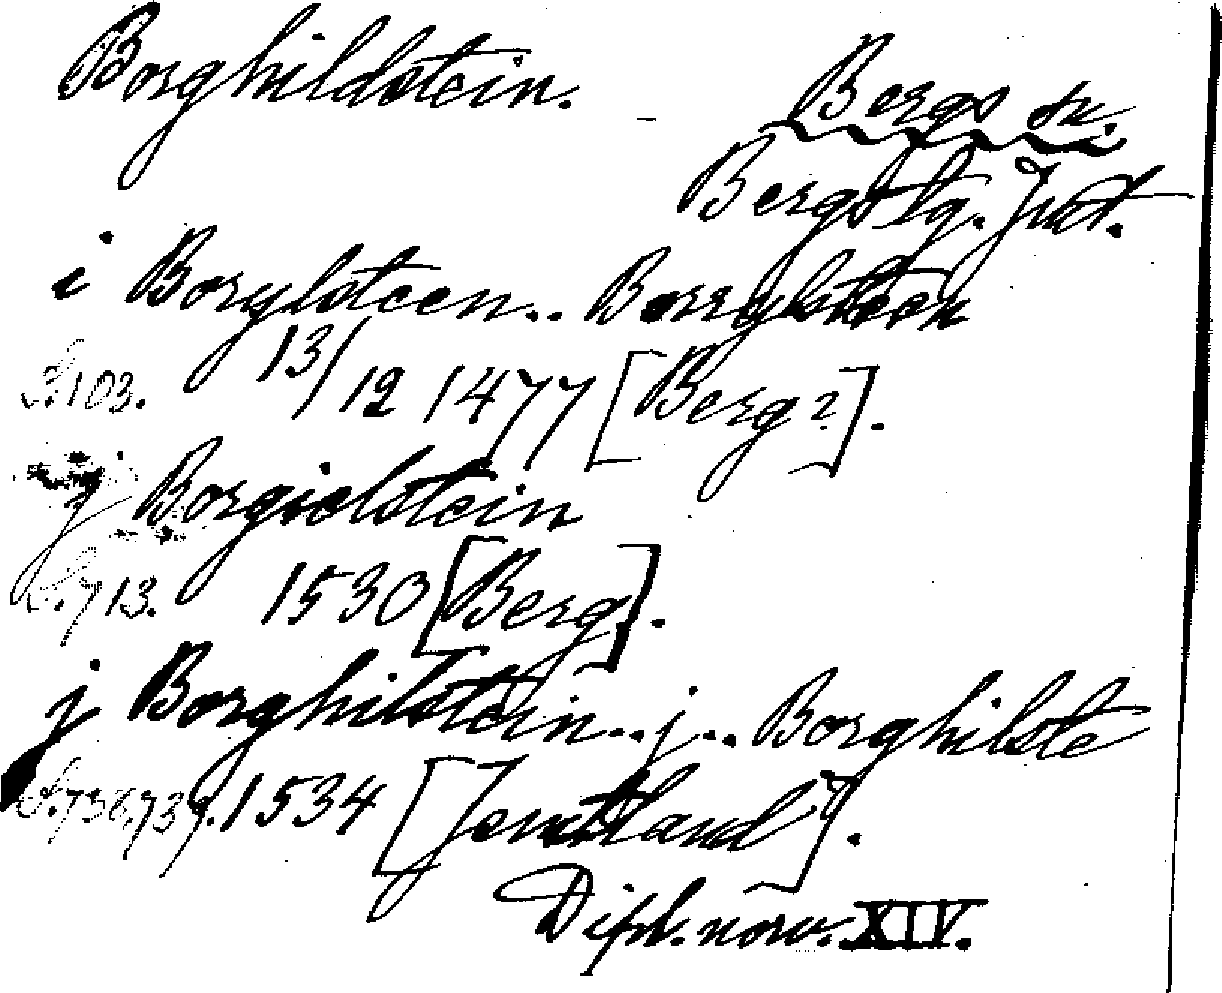 Borghildstein. - Bergs sn.
Bergs tg. Jmt.
i BorgLsteen.. Borrylsteen
S. 103. 13/12 1477 [Berg?].
j Borgielstein
S. 713. 1530 [Berg].
j Borghilstein.. j.. Borghilste
S. 738, 739. 1534 [Jemtland].
Dipl. norv. XIV.